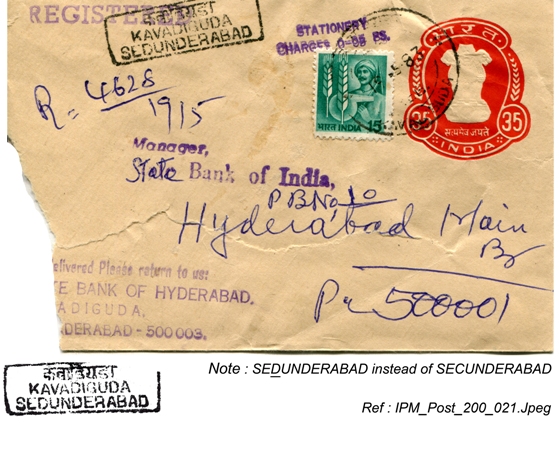 REGISTERED
कवाडिगुडा
KAVADIGUDA
SEDUNDERABAD
STATIONERY
CHARGES 0-05 PS.
भारत
35 35
सत्यमेव जयते
INDIA
भारत INDIA 15
R = 4628
1915
Manager,
State Bank of India,
P B No, 10
Hyderabad Main
Br
Pin 500001
delivered Please return to us:
TE BANK OF HYDERABAD,
ADIGUDA,
NDERABAD-500 003.
कवाडिगुडा
KAVADIGUDA
SEDUNDERABAD
Note : SEDUNDERABAD instead of SECUNDERABAD
Ref : IPM_Post_200_021.Jpeg